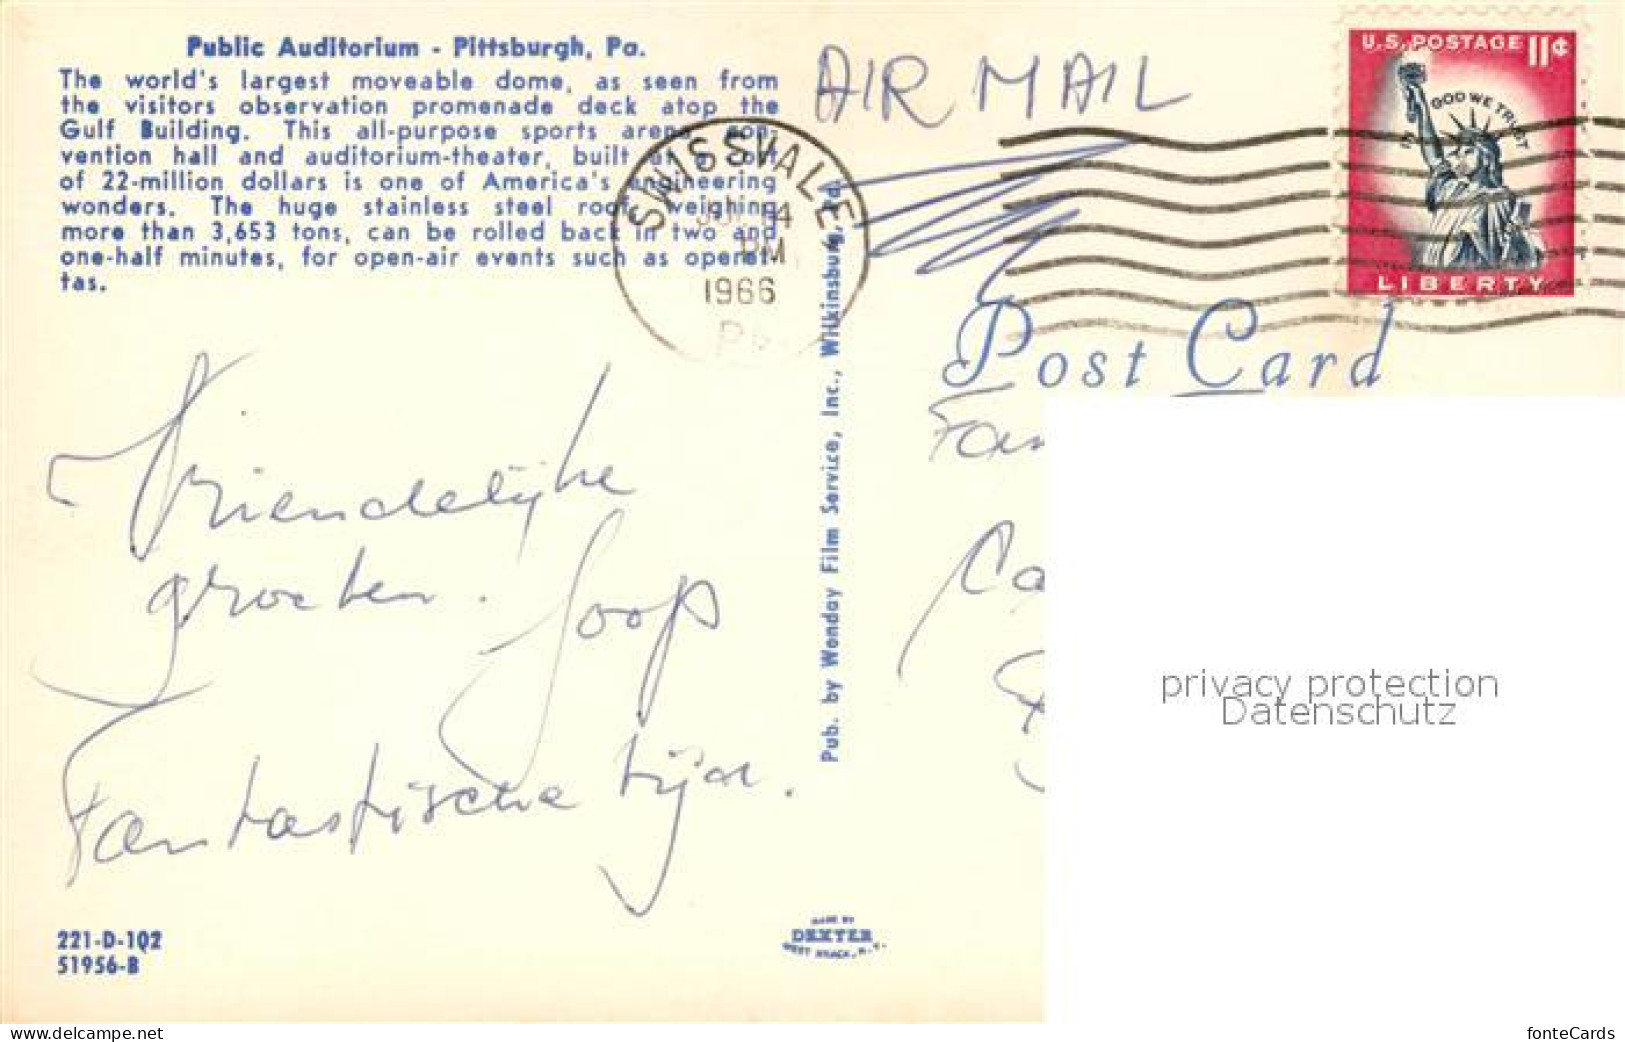 Public Auditorium - Pittsburgh, Pa.
The world's largest moveable dome, as seen from
the visitors observation promenade deck atop the
Gulf Building. This all-purpose sports arena, con-
vention hall and auditorium-theater, built at a cost
of 22-million dollars is one of America's engineering
wonders. The huge stainless steel roof, weighing
more than 3,653 tons, can be rolled back in two and
one-half minutes, for open-air events such as operet-
tas.
AIR MAIL
U.S. POSTAGE 11¢
IN GOD WE TRUST
LIBERTY
SWISSVALE
14
PM
1966
Pa.
Post Card
Vriendelijke
groeten. Joop
Fantastische tijd.
Pub. by Wonday Film Service, Inc., Wilkinsburg, Pa.
Fam
Ca
privacy protection
Datenschutz
221-D-102
51956-B
MADE BY
DEXTER
WEST NYACK, N.Y.
www.delcampe.net
fonteCards